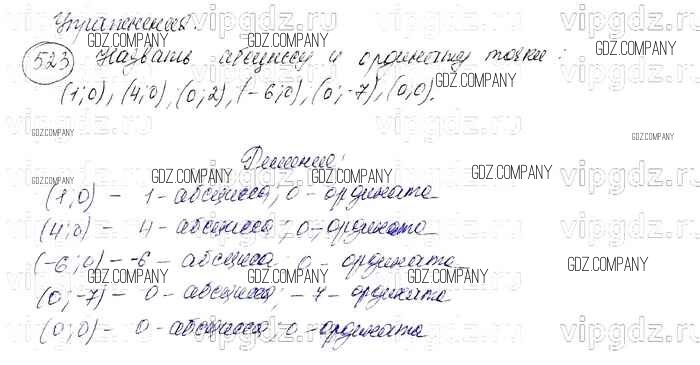 Упражнения.
523 Назвать абсциссу и ординату точки:
(1;0), (4;0), (0;2), (-6;0), (0;-7), (0,0).
Решение:
(1;0) - 1 - абсцисса; 0 - ордината
(4;0) - 4 - абсцисса; 0 - ордината
(-6;0) - -6 - абсцисса; 0 - ордината
(0;-7) - 0 - абсцисса; -7 - ордината
(0;0) - 0 - абсцисса; 0 - ордината
GDZ.COMPANY
vipgdz.ru